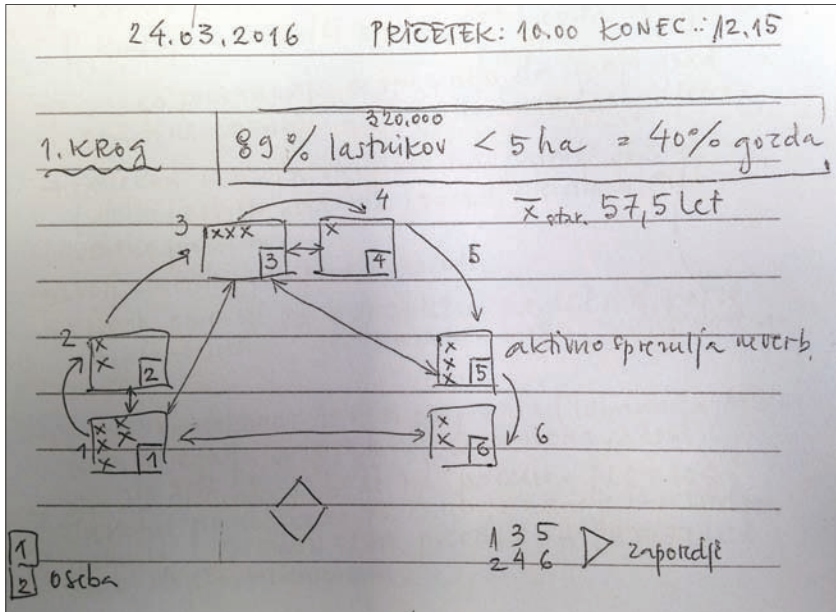 24.03.2016 PRIČETEK: 10.00 KONEC: 12.15
320.000
1. KROG 89% lastnikov < 5 ha = 40% gozda
x̅ star. 57,5 let
4
3 xxx 3 x 4
5
2 x x 2 x x x 5 aktivno spremlja neverb.
1 x x x x x 1 x x 6 6
1 3 5
2 4 6 zaporedje
1
2 oseba